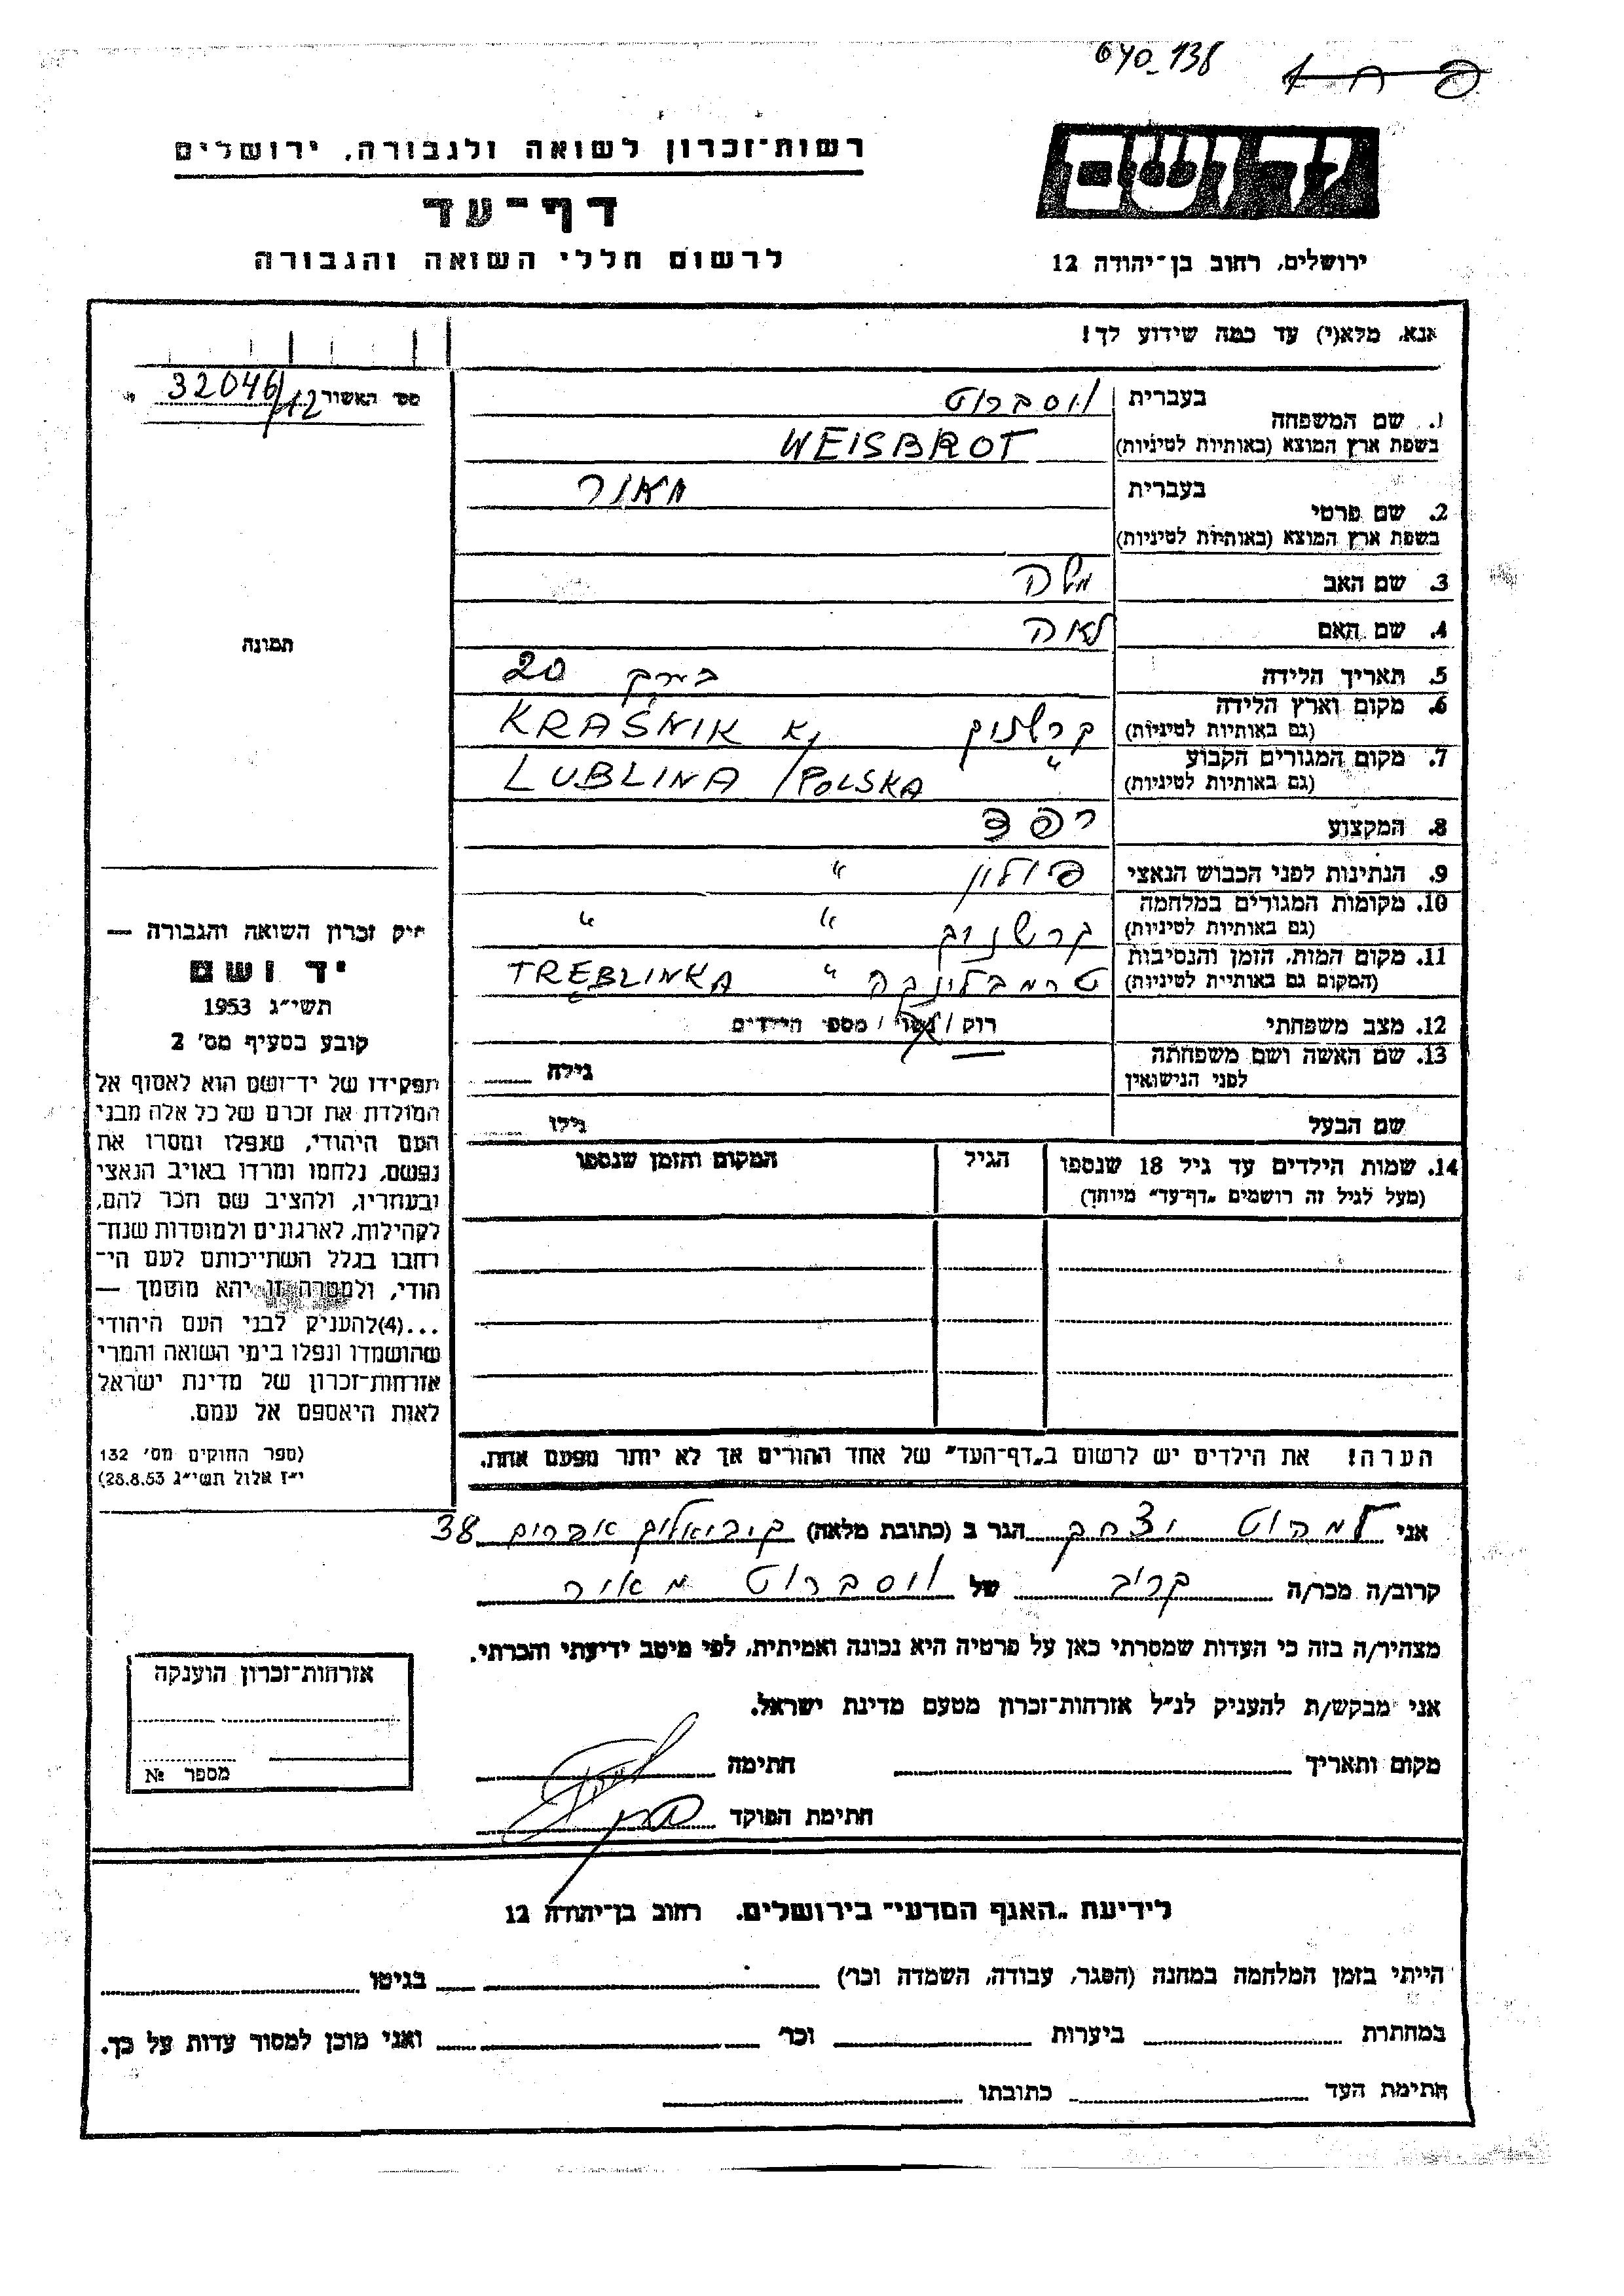 640-138
רשות־זכרון לשואה ולגבורה, ירושלים
דף־עד
לרשום חללי השואה והגבורה
יד ושם
ירושלים, רחוב בן־יהודה 12
אנא, מלא(י) עד כמה שידוע לך!
מס' האשור 32046/12
1. שם המשפחה בעברית וויסברוט
בשפת ארץ המוצא (באותיות לטיניות) WEISBROT
2. שם פרטי בעברית מאיר
בשפת ארץ המוצא (באותיות לטיניות)
3. שם האב משה
4. שם האם לאה
5. תאריך הלידה בערך 20
6. מקום וארץ הלידה קרשניק KRAŚNIK K/
(גם באותיות לטיניות)
7. מקום המגורים הקבוע " LUBLINA / POLSKA
(גם באותיות לטיניות)
8. המקצוע רפד
9. הנתינות לפני הכבוש הנאצי פולין "
10. מקומות המגורים במלחמה קרשניק " "
(גם באותיות לטיניות)
11. מקום המות, הזמן והנסיבות טרמבלינקה " TRĘBLINKA
(המקום גם באותיית לטיניות)
12. מצב משפחתי רוק / נשוי / מספר הילדים
13. שם האשה ושם משפחתה לפני הנישואין גילה
שם הבעל גילו
14. שמות הילדים עד גיל 18 שנספו הגיל המקום והזמן שנספו
(מעל לגיל זה רושמים "דף־עד" מיוחד)
הערה! את הילדים יש לרשום ב"דף־העד" של אחד ההורים אך לא יותר מפעם אחת.
תמונה
חוק זכרון השואה והגבורה —
יד ושם
תשי״ג 1953
קובע בסעיף מס' 2
תפקידו של יד־ושם הוא לאסוף אל
המולדת את זכרם של כל אלה מבני
העם היהודי, שנפלו ומסרו את
נפשם, נלחמו ומרדו באויב הנאצי
ובעוזריו, ולהציב שם וזכר להם,
לקהילות, לארגונים ולמוסדות שנח־
רבו בגלל השתייכותם לעם הי־
הודי, ולמטרה זו יהא מוסמך —
...(4)להעניק לבני העם היהודי
שהושמדו ונפלו בימי השואה והמרי
אזרחות־זכרון של מדינת ישראל
לאות היאספם אל עמם.
(ספר החוקים מס' 132
י״ז אלול תשי״ג 28.8.53)
אני יצחק הגר ב (כתובת מלאה) 38
קרוב/ה מכר/ה קרוב של וויסברוט מאיר
מצהיר/ה בזה כי העדות שמסרתי כאן על פרטיה היא נכונה ואמיתית, לפי מיטב ידיעתי והכרתי.
אני מבקש/ת להעניק לנ״ל אזרחות־זכרון מטעם מדינת ישראל.
מקום ותאריך חתימה
חתימת הפוקד
אזרחות־זכרון הוענקה
מספר №
לידיעת "האגף המדעי" בירושלים. רחוב בן־יהודה 12
הייתי בזמן המלחמה במחנה (הסגר, עבודה, השמדה וכו') בגיטו
במחתרת ביערות וכו' ואני מוכן למסור עדות על כך.
חתימת העד כתובתו